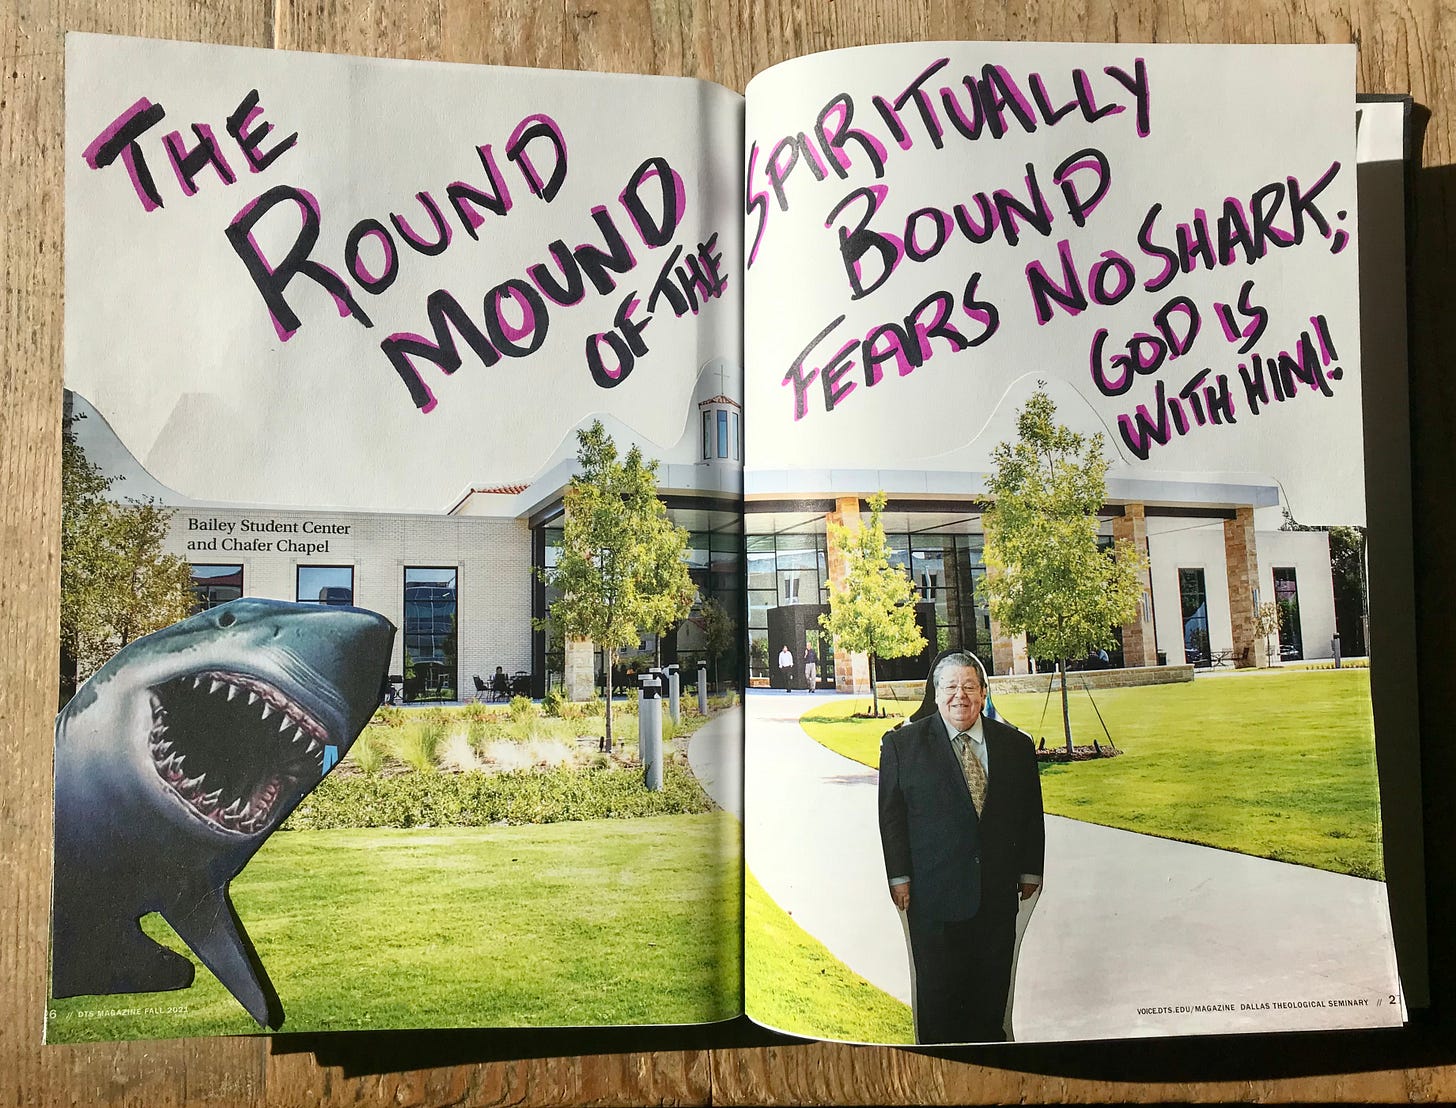 THE
ROUND
MOUND
OF THE
SPIRITUALLY
BOUND
FEARS NO SHARK;
GOD IS
WITH HIM!!
Bailey Student Center
and Chafer Chapel
26 // DTS MAGAZINE FALL 2021
VOICE.DTS.EDU/MAGAZINE DALLAS THEOLOGICAL SEMINARY //